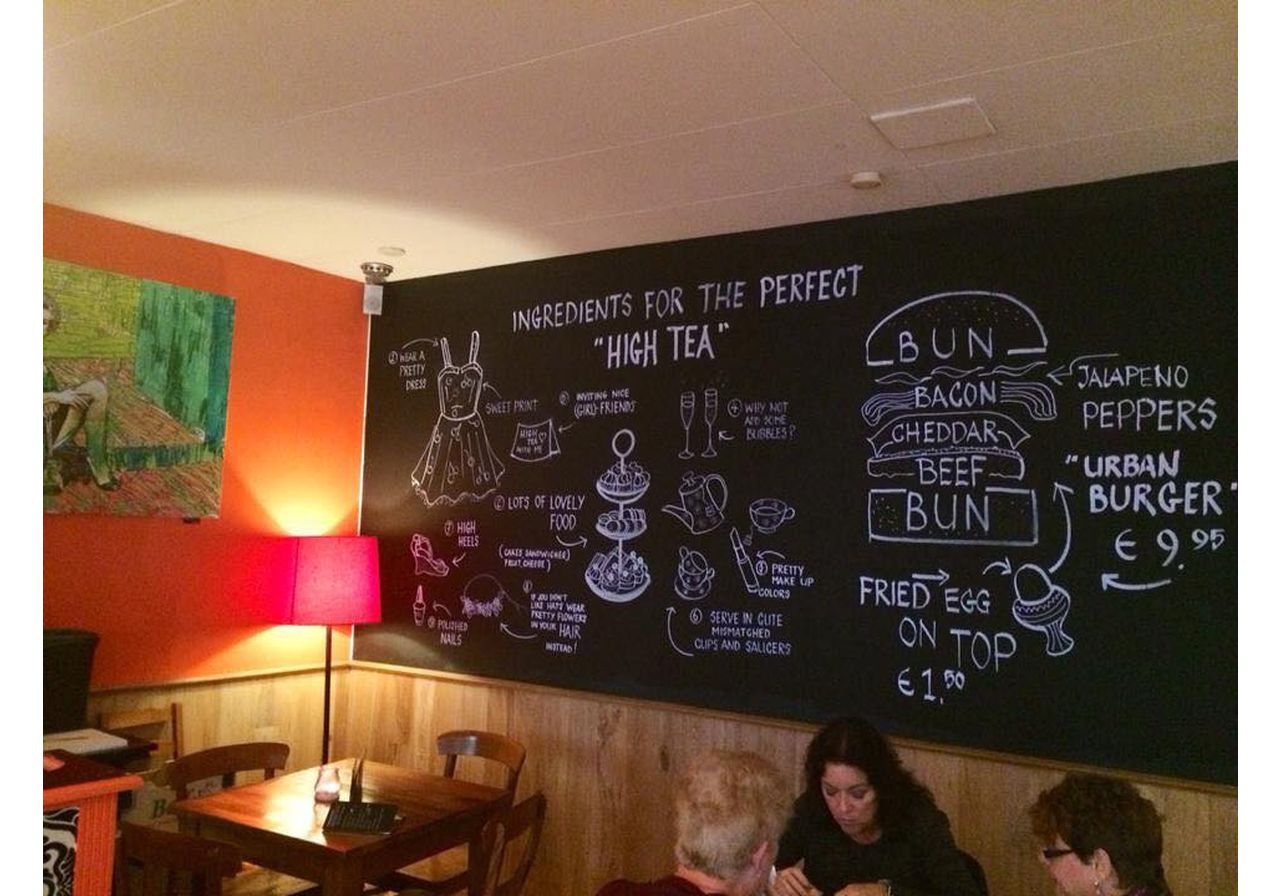 INGREDIENTS FOR THE PERFECT
"HIGH TEA"
WEAR A
PRETTY
DRESS
SWEET PRINT
INVITING NICE
(GIRL)-FRIENDS
HIGH
TEA
WITH ME
4 WHY NOT
ADD SOME
BUBBLES?
LOTS OF LOVELY
FOOD
(CAKES, SANDWICHES,
FRUIT, CHEESE)
7 HIGH
HEELS
POLISHED
NAILS
IF YOU DON'T
LIKE HATS WEAR
PRETTY FLOWERS
IN YOUR HAIR
INSTEAD!
PRETTY
MAKE UP
COLORS
6 SERVE IN CUTE
MISMATCHED
CUPS AND SAUCERS
BUN
BACON
CHEDDAR
BEEF
BUN
JALAPENO
PEPPERS
"URBAN
BURGER"
€ 9.95
FRIED EGG
ON TOP
€ 1.50